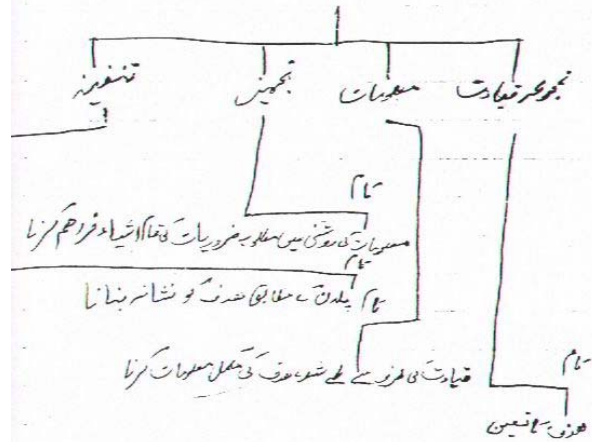 مجموعہ قیادت معلومات تجہیز تنفیذ
کام
معلومات کی روشنی میں مطلوبہ ضروریات کی تمام اشیاء فراہم کرنا
کام
کام پلان کے مطابق ہدف کو نشانہ بنانا
قیادت کی طرف سے طے شدہ ہدف کی مکمل معلومات کرنا
کام
ہدف کا تعین